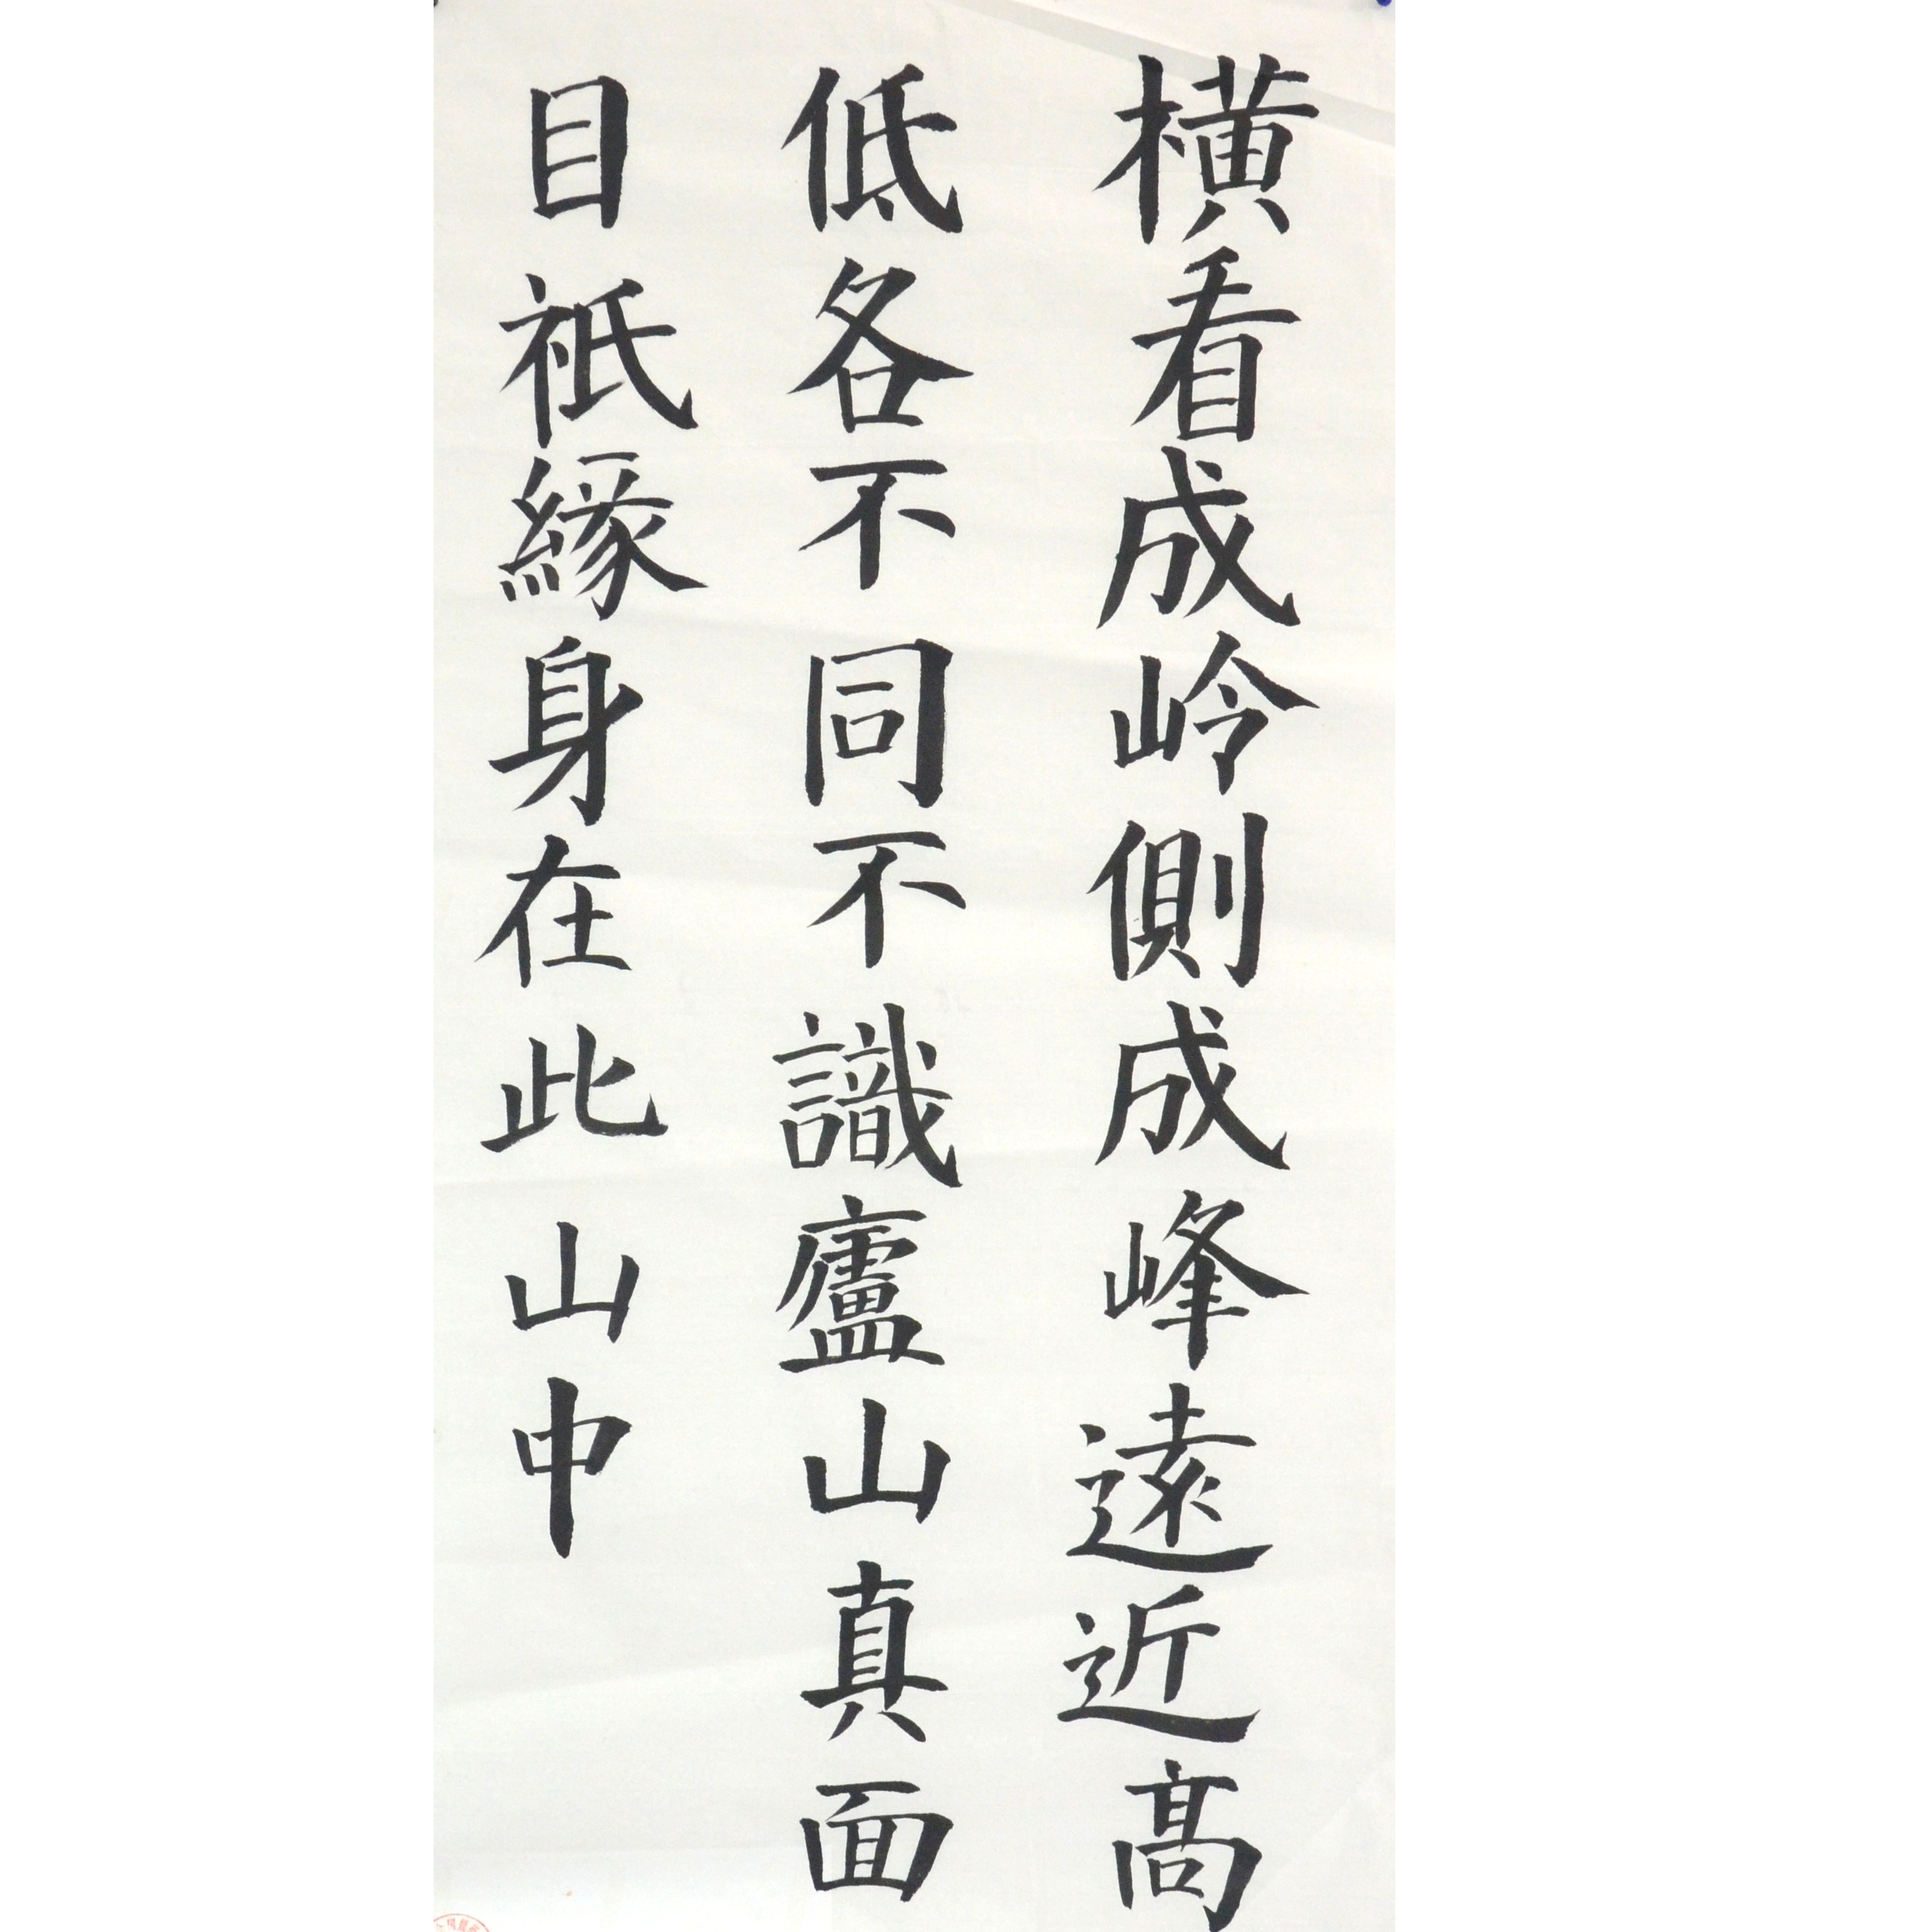 橫看成岭側成峰遠近高
低各不同不識廬山真面
目祇緣身在此山中